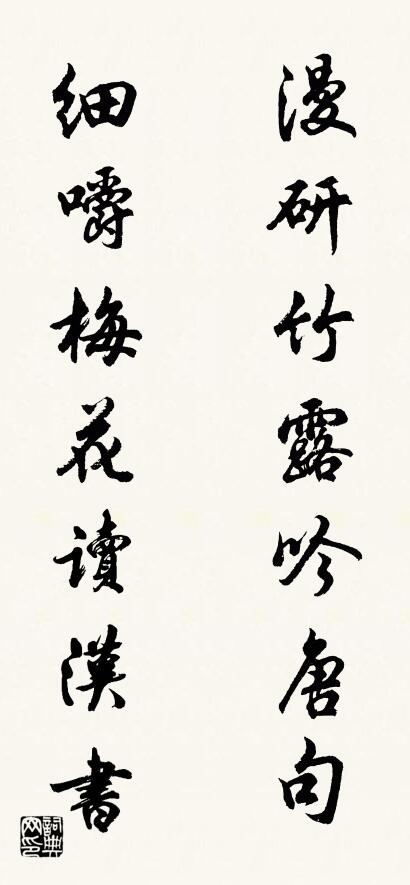 漫研竹露吟唐句
细嚼梅花讀漢書
詞典网印